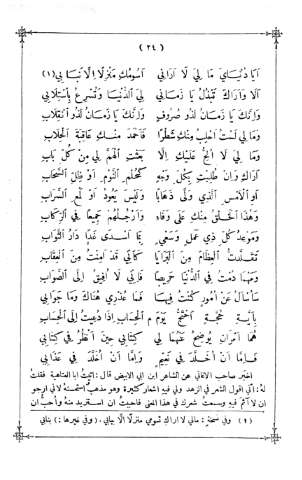 ( ٢٤ )
أيا دنياي ما لي لا أراني أسومك منزلا إلا نبا بي (١)
ألا وأراك تبذل يا زماني لي الدنيا وتسرع باستلابي
وإنك يا زمان لذو صروف وإنك يا زمان لذو انقلاب
وما لي لست أحلب منك شطرا فأحمد منك عاقبة الحلاب
وما لي لا ألح عليك إلا بعثت الهم لي من كل باب
أراك وإن طلبت بكل وجه كحلم النوم أو ظل السحاب
أو الأمس الذي ولى ذهابا وليس يعود أو لمع السراب
وهذا الخلق منك على وفاء وأرجلهم جميعا في الركاب
وموعد كل ذي عمل وسعي بما أسدى غدا دار الثواب
تقلدت العظام من البرايا كأني قد أمنت من العقاب
ومهما دمت في الدنيا حريصا فإني لا أفيق إلى الصواب
سأسأل عن أمور كنت فيها فما عذري هناك وما جوابي
بأية حجة أحتج يوم م الحساب إذا دعيت إلى الحساب
هما أمران يوضح عنهما لي كتابي حين أنظر في كتابي
فإما أن أخلد في نعيم وإما أن أخلد في عذابي
أخبر صاحب الأغاني عن الشاعر ابن أبي الأبيض قال: أتيت أبا العتاهية فقلت
له: إني أقول الشعر في الزهد ولي فيه أشعار كثيرة وهو مذهب أستحسنه لأني أرجو
أن لا آثم فيه وسمعت شعرك في هذا المعنى فأحببت أن أستزيد منه وأحب أن
(١) وفي نسخة: مالي لا أراك تسومي منزلا إلا بهابي. (وفي غيرها:) بنابي